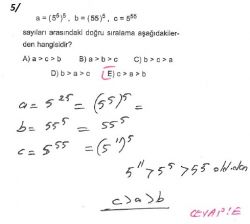 5/
a = (5⁵)⁵ , b = (55)⁵ , c = 5⁵⁵
sayıları arasındaki doğru sıralama aşağıdakiler-
den hangisidir?
A) a > c > b B) a > b > c C) b > c > a
D) b > a > c E) c > a > b
a = 5²⁵ = (5⁵)⁵ =
b = 55⁵ = 55⁵
c = 5⁵⁵ = (5¹¹)⁵
5¹¹ > 5⁵ > 55 olduğundan
c > a > b
CEVAP E